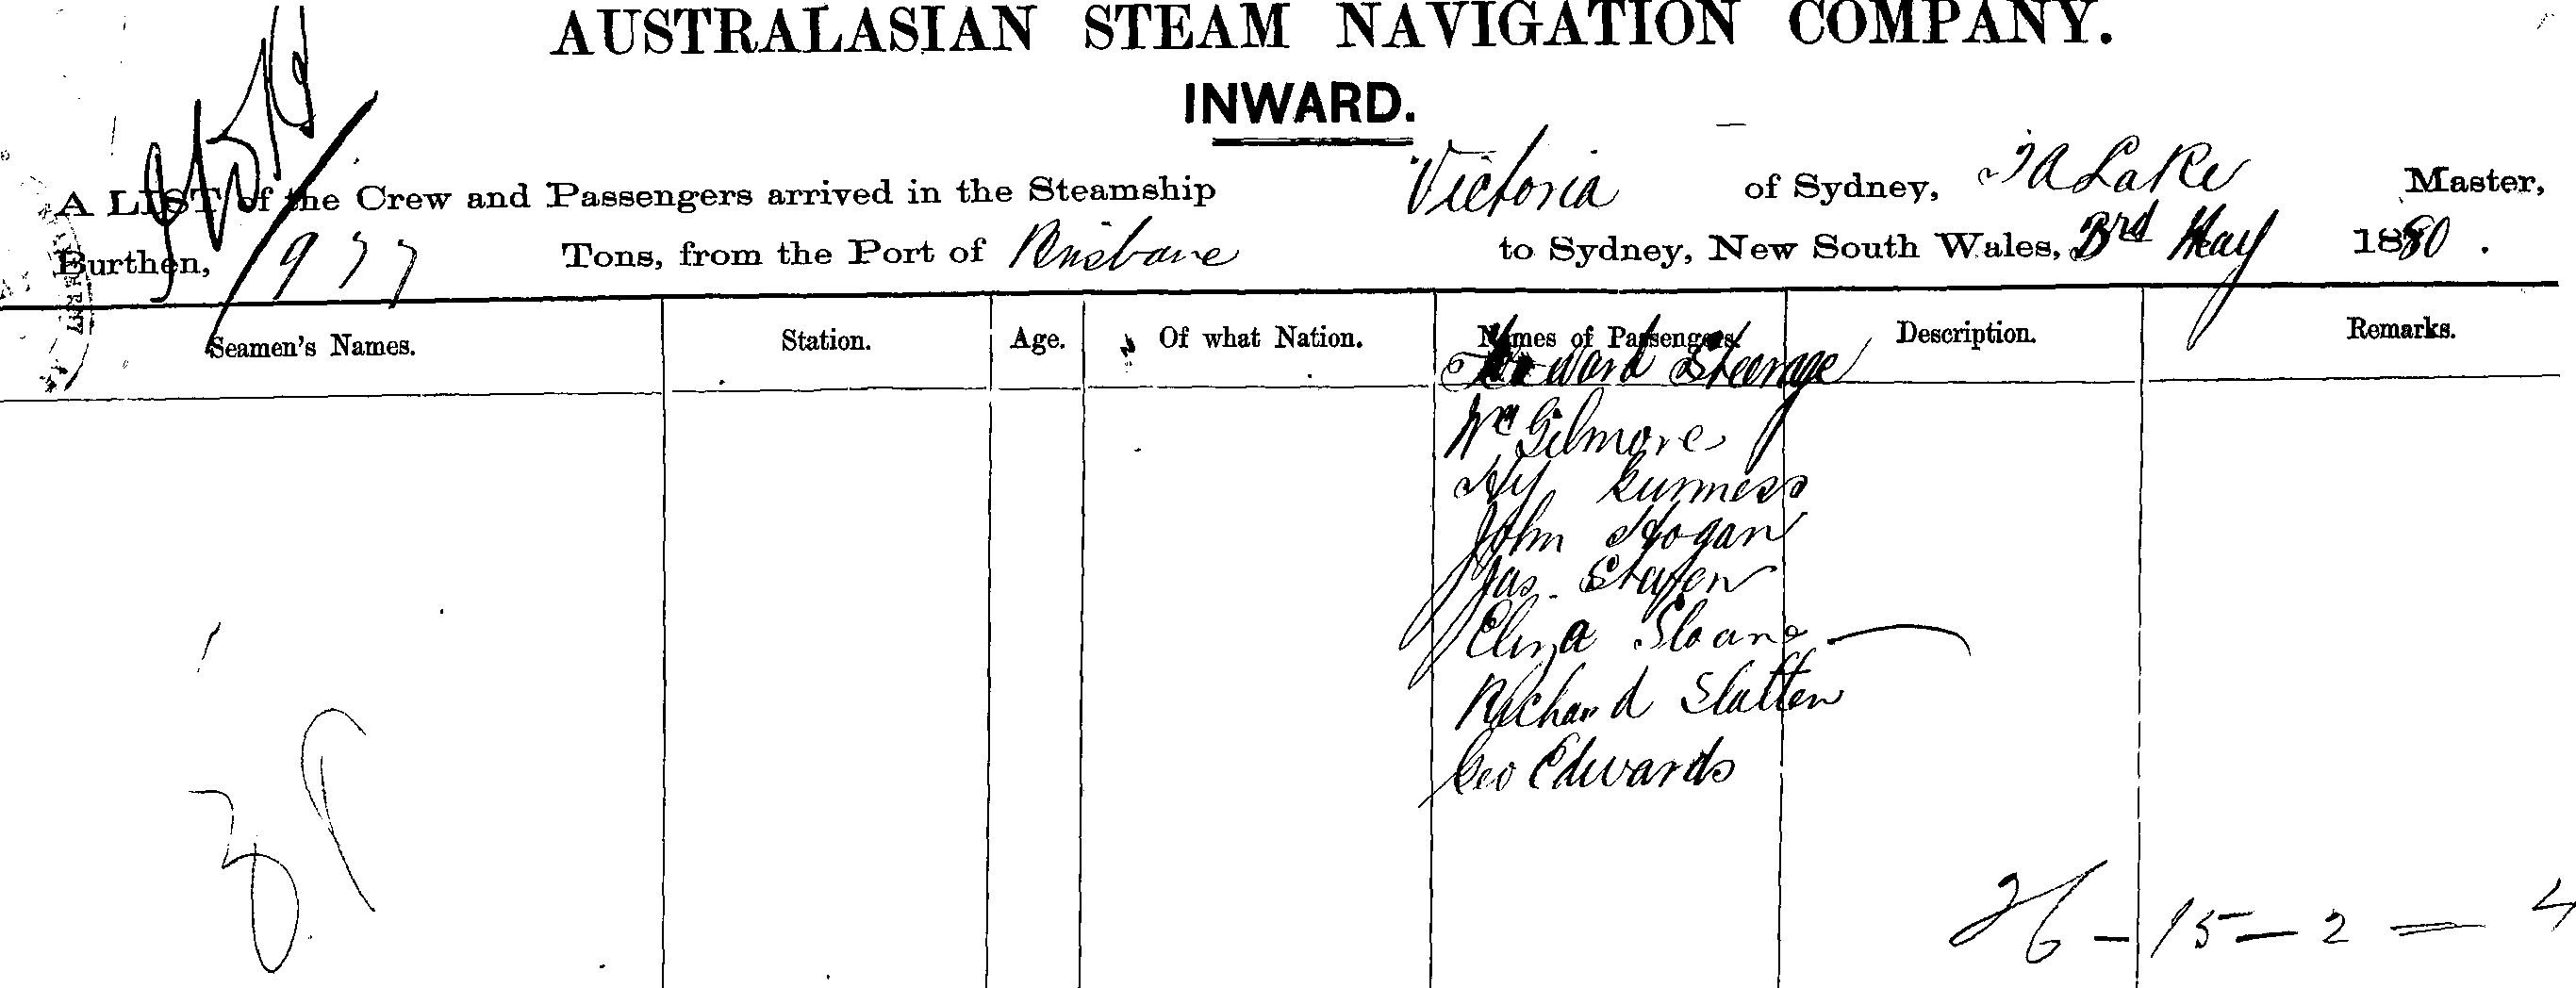 AUSTRALASIAN STEAM NAVIGATION COMPANY.
INWARD.
A LIST of the Crew and Passengers arrived in the Steamship Victoria of Sydney, Lake Master,
Burthen, 977 Tons, from the Port of Brisbane to Sydney, New South Wales, 3rd May 1880.
Seamen's Names. Station. Age. Of what Nation. Names of Passengers. Description. Remarks.
Forward Steerage
Gilmore
Hy
John Hogan
Jas.
Eliza Sloane
Richard Slatten
Geo Edwards
26 - 15 - 2 = 4